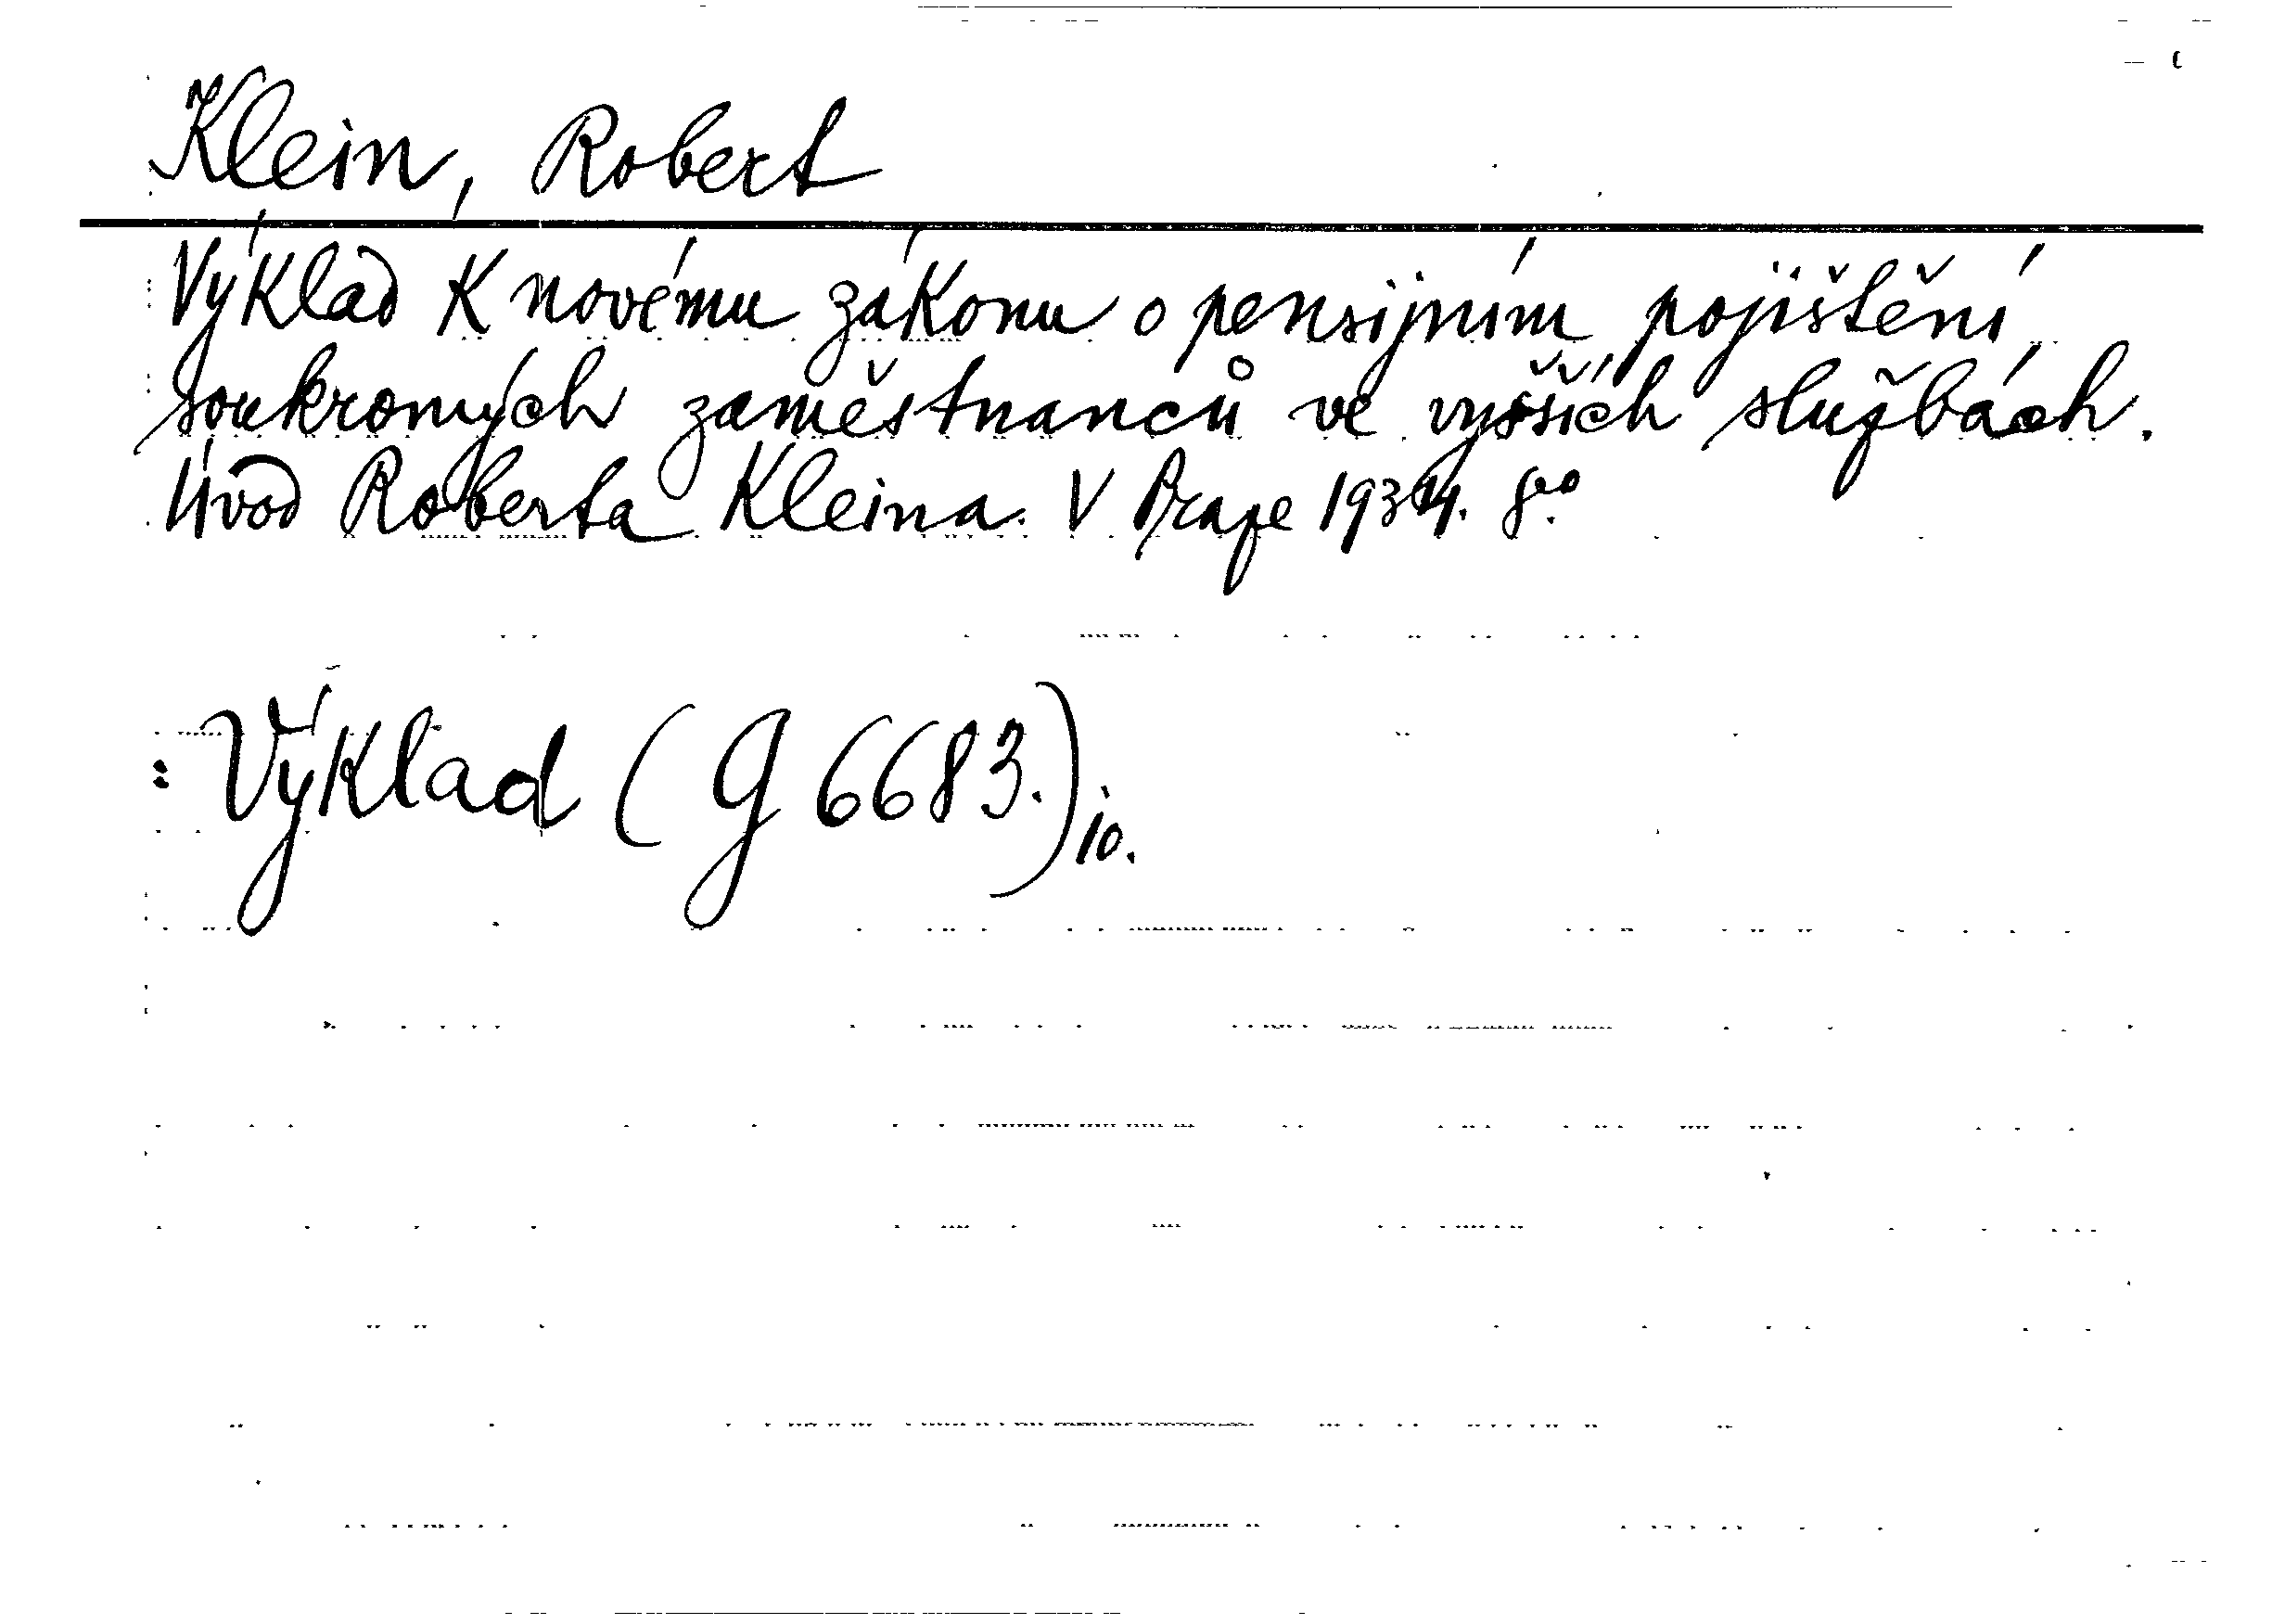 Klein, Robert
Výklad k novému zákonu o pensijním pojištění
soukromých zaměstnanců ve vyšších službách.
Úvod Roberta Kleina. V Praze 1934. 8º.
: Výklad (G 6683.) io.